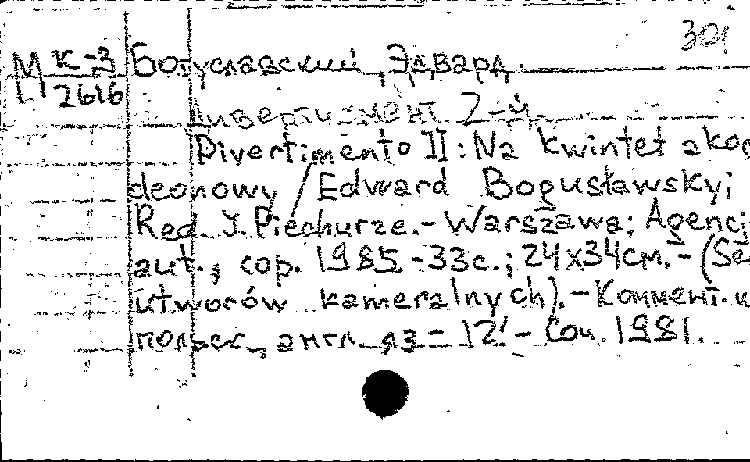 301
М К-3 Богуславский, Эдвард.
2616
Дивертисмент 2-й.
Divertimento II: Na kwintet akor
deonowy / Edward Bogusławsky;
Red. J. Piechurze. - Warszawa: Agencj
aut., cop. 1985. - 33с.; 24х34см. - (Se
utworów kameralnych). - Коммент. н
польск., англ. яз - 12' - Соч. 1981.